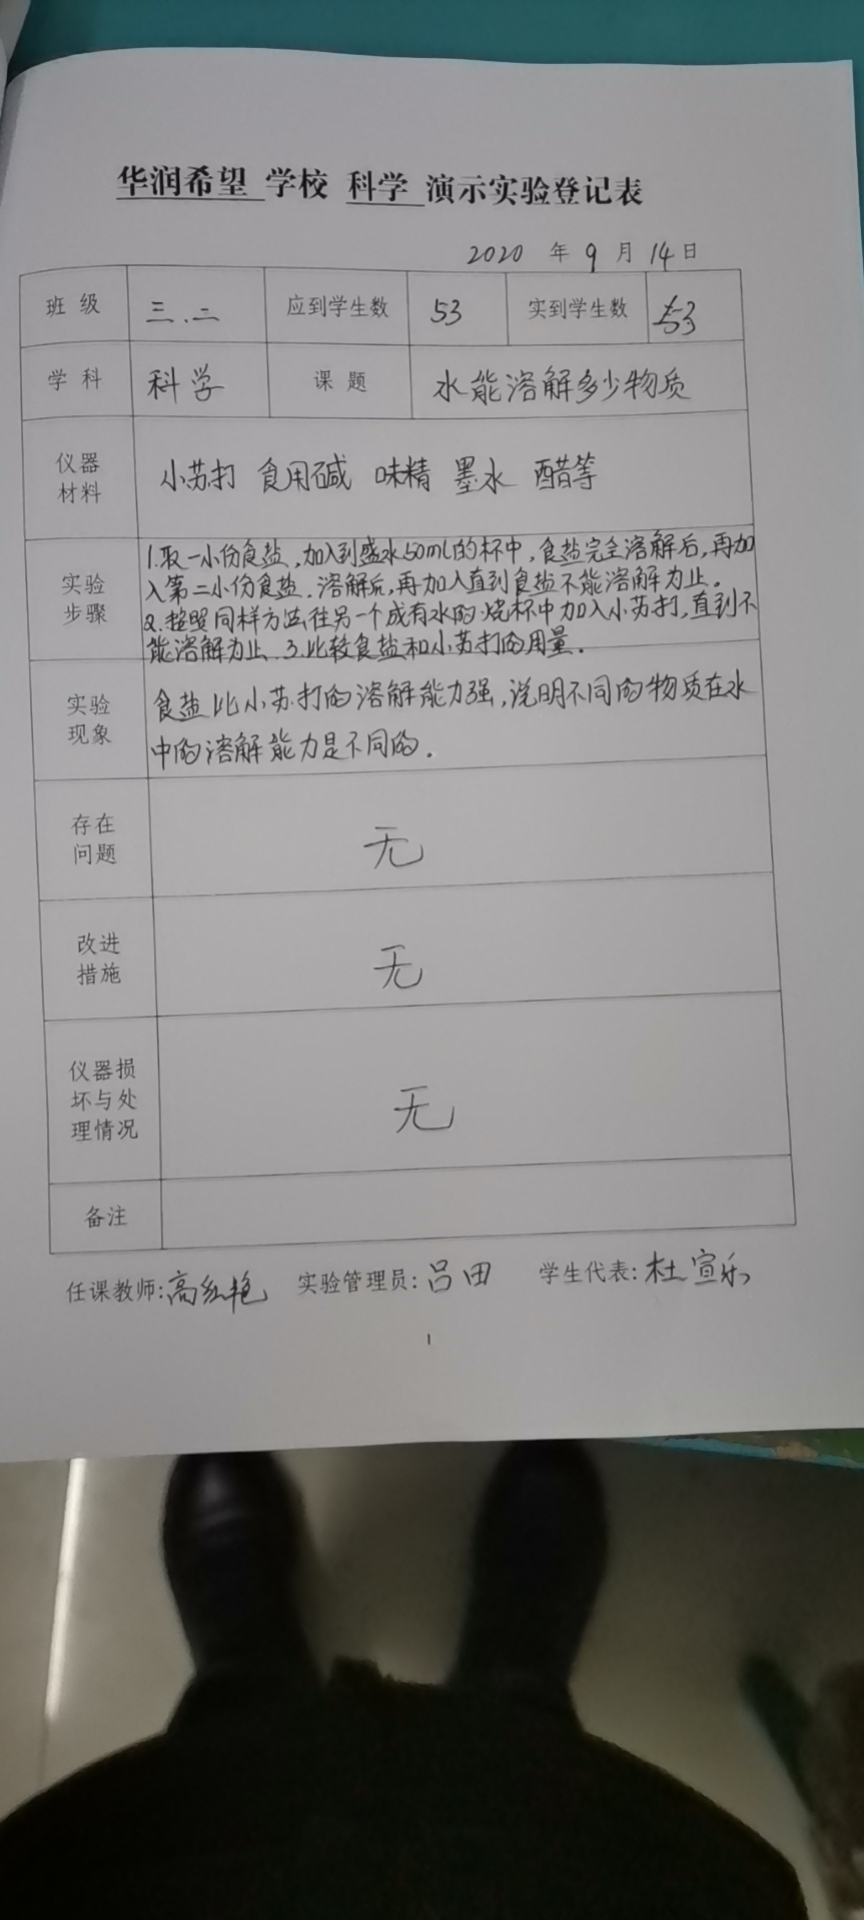 华润希望 学校 科学 演示实验登记表
2020 年 9 月 14 日
班 级 三.二 应到学生数 53 实到学生数 53
学 科 科学 课 题 水能溶解多少物质
仪器
材料
小苏打 食用碱 味精 墨水 醋等
实验
步骤
1.取一小份食盐,加入到盛水50ml的杯中,食盐完全溶解后,再加
入第二小份食盐.溶解后,再加入直到食盐不能溶解为止。
2.按照同样方法往另一个成有水的烧杯中加入小苏打,直到不
能溶解为止.3.比较食盐和小苏打的用量.
实验
现象
食盐比小苏打的溶解能力强,说明不同的物质在水
中的溶解能力是不同的.
存在
问题
无
改进
措施
无
仪器损
坏与处
理情况
无
备注
任课教师:高红艳 实验管理员:吕田 学生代表:杜宣乐
1